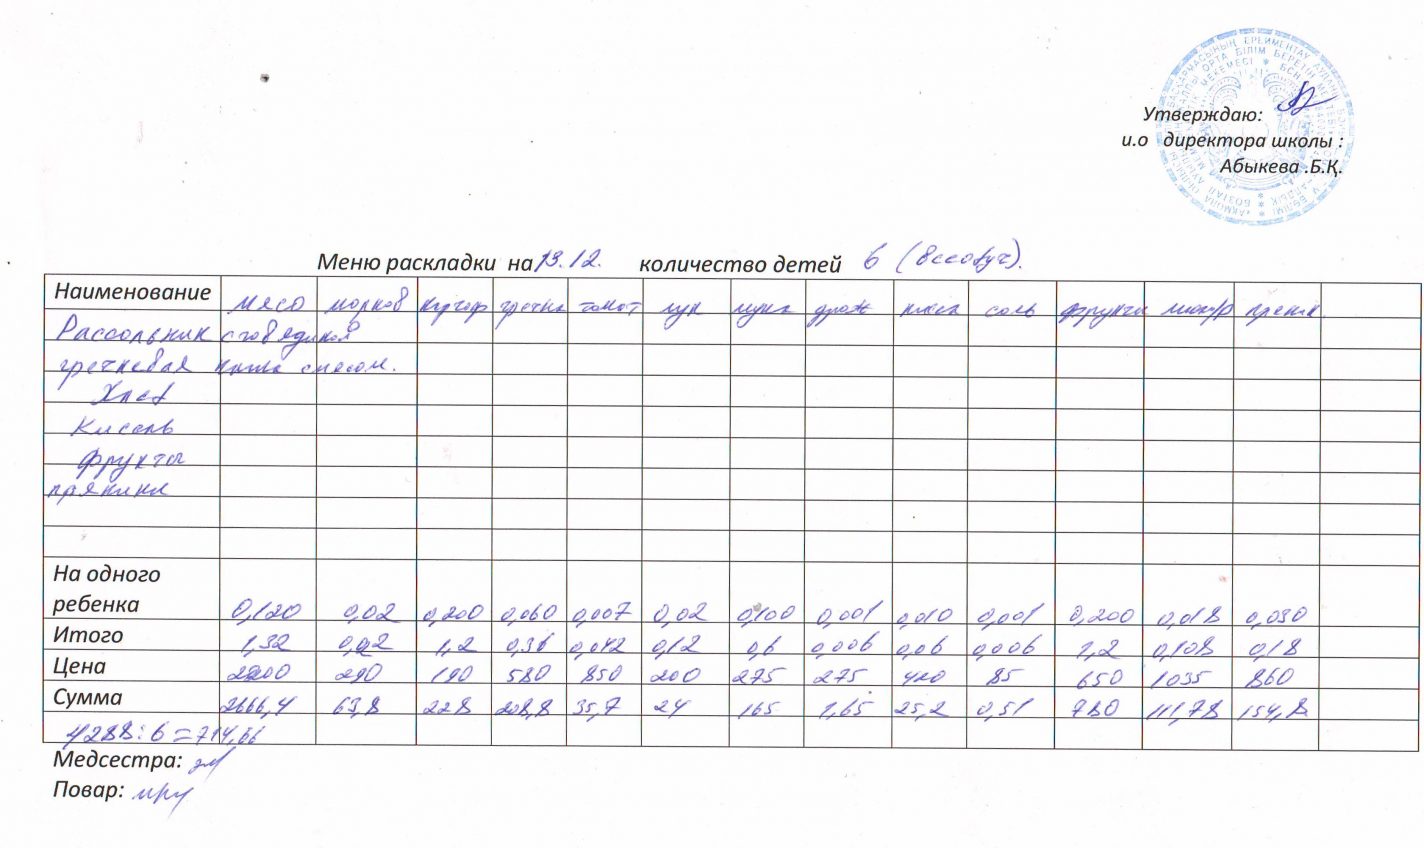 Утверждаю:
и.о директора школы :
Абыкева .Б.Қ.
Меню раскладки на 13.12. количество детей 6 (всеобуч).
Наименование мясо морков картоф гречка томот лук мука дрож кисел соль фрукты пряник
Рассольник с говядиной
гречневая каша с мясом.
Хлеб
Кисель
фрукты
пряники
На одного
ребенка 0,120 0,02 0,200 0,060 0,007 0,02 0,100 0,001 0,010 0,001 0,200 0,018 0,030
Итого 1,32 1,2 0,36 0,042 0,12 0,6 0,006 0,06 0,006 1,2 0,108 0,18
Цена 290 190 580 850 200 275 275 420 85 650 1035 860
Сумма 2666,4 63,8 228 208,8 35,7 24 165 1,65 25,2 0,51 780 111,78 154,8
4288:6=714,66
Медсестра:
Повар: